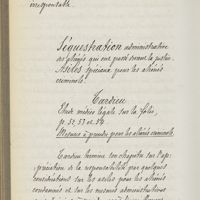 irresponsable.
Séquestration administrative
des aliénés qui ont passé devant la justice.
Asiles spéciaux pour les aliénés
criminels.
Tardieu
Etude médico légale sur la folie,
p. 52, 53 et 54.
Mesures à prendre pour les aliénés criminels.
Tardieu termine son chapitre sur l'ap-
préciation de la responsabilité par quelques
considérations sur les asiles pour les aliénés
condamnés et sur les mesures administratives